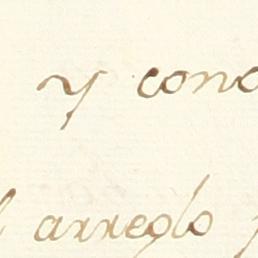 y cono
arreglo